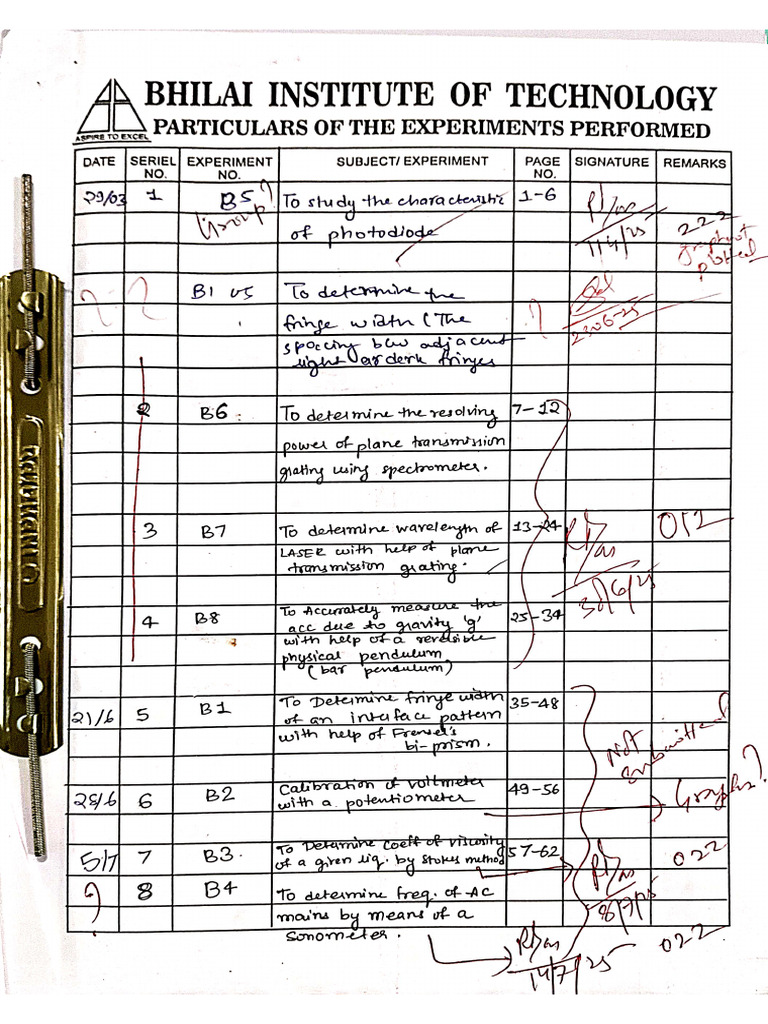 BHILAI INSTITUTE OF TECHNOLOGY
ASPIRE TO EXCEL
PARTICULARS OF THE EXPERIMENTS PERFORMED
DATE SERIEL NO. EXPERIMENT NO. SUBJECT/ EXPERIMENT PAGE NO. SIGNATURE REMARKS
29/03 1 B5 ? To study the characteristic 1-6
Group of photodiode 1/4/25 222
graph not
plotted
? ? B1 To determine the
fringe width (The ? 23 06-25
spaccing b/w adjacent
light or derk fringes
2 B6 : To determine the resolving 7-12
power of plane transmission
grating using spectrometer.
3 B7 To determine wavelength of 13-24 012
LASER with help of plane
transmission grating. 30/6/25
4 B8 To Accurately measure the 25-34
acc due to gravity 'g'
with help of a reversible
physical pendulum
(bar pendulum)
21/6 5 B1 To Determine fringe width 35-48
of an interface pattern Not
with help of Frensel's submitted
bi-prism.
28/6 6 B2 Calibration of voltmeter 49-56 Graphs?
with a potentiometer
5/7 7 B3. To Determine Coeff of viscosity 57-62 022
of a given liq. by stokes method
? 8 B4 To determine freq. of AC 8/7/25
mains by means of a
sonometer. 14/7/25 022